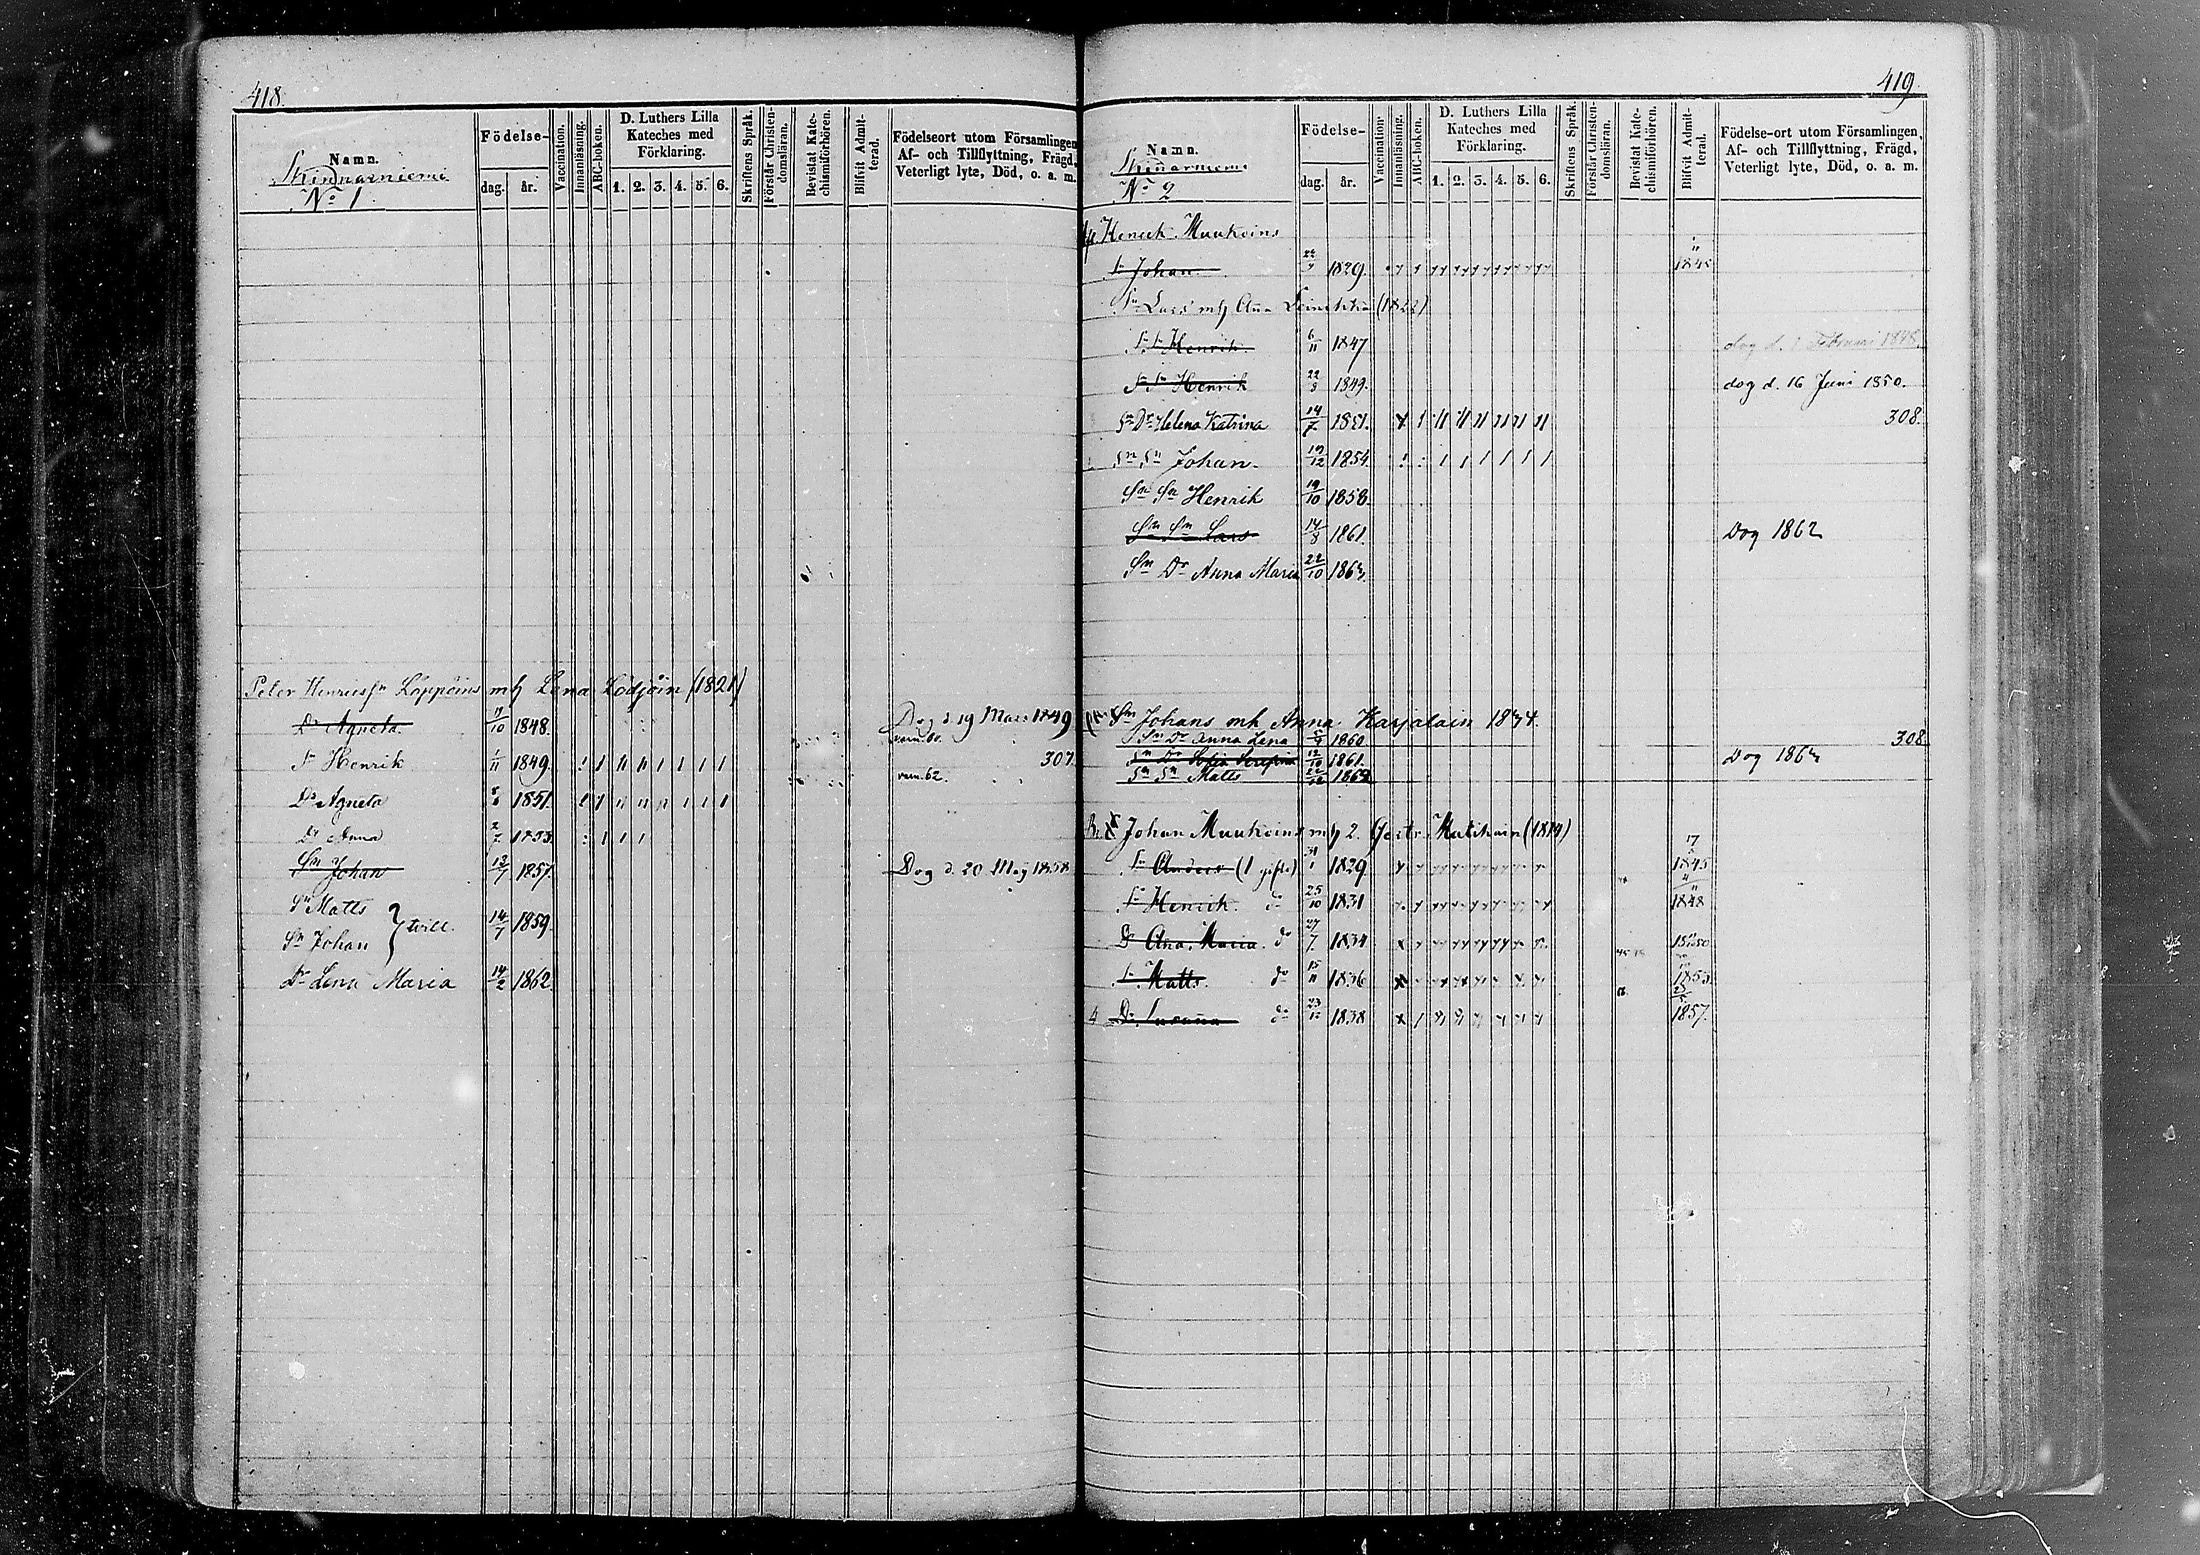 418.
Namn.
Skinnarniemi
No 1.
Födelse-
dag. år.
Vaccination.
Innanläsning.
ABC-boken.
D. Luthers Lilla
Kateches med
Förklaring.
1. 2. 3. 4. 5. 6.
Skriftens Språk.
Förstår Christen-
domsläran.
Bevistat Kate-
chismiförhören.
Blifvit Admit-
terad.
Födelseort utom Församlingen
Af- och Tillflyttning, Frägd,
Veterligt lyte, Död, o. a. m.
Peter Henricsn Löppöins mh Lena Lodjöin (1821)
Dr Agneta 19/10 1848. Dog d. 19 Mars 1849
Sn Henrik 1/11 1849. 307
Dr Agneta 1851. vacc. 62.
Dr Anna 2/7 1853.
Sn Johan 13/7 1857. Dog d. 20 Maj 1858
Sn Matts } tvill. 14/7 1859.
Sn Johan
Dr Lena Maria 14/2 1862.
419.
Namn.
Skinnarniemi
No 2
Födelse-
dag. år.
Vaccination
Innanläsning.
ABC-boken.
D. Luthers Lilla
Kateches med
Förklaring.
1. 2. 3. 4. 5. 6.
Skriftens Språk.
Förstår Christen-
domsläran.
Bevistat Kate-
chismiförhören.
Blifvit Admit-
terad.
Födelse-ort utom Församlingen,
Af- och Tillflyttning, Frägd,
Veterligt lyte, Död, o. a. m.
Henrik Muukoins
Sn Johan 1829. 1845
Sn Lars mh Anna (1822)
Sn Sn Henrik 6/11 1847 dog d. 1 Februari 1848.
Sn Sn Henrik 22/8 1849. dog d. 16 Juni 1850.
Sn Dr Helena Katrina 14/7 1851. 308.
Sn Sn Johan 19/12 1854.
Sn Sn Henrik 19/10 1858.
Sn Sn Lars 14/8 1861. Dog 1862
Sn Dr Anna Maria 22/10 1863.
Sn Johans mh Anna Karjalain 1834.
Sn Dr Anna Lena 1860 308
Sn Dr Sofia Serafina 12/10 1861. Dog 1863
Sn Sn Matts
Johan Muukoins mh 2. Gertr. Matikain (1819)
Sn Anders (1 gifte) 31/1 1829 17 1845
Sn Henrik do 25/10 1831 4/11 1848
Dr Ana Maria do 27/7 1834 1850
Sn Matts do 15/11 1836 1853.
Dr Susanna do 1838 25/5 1857.